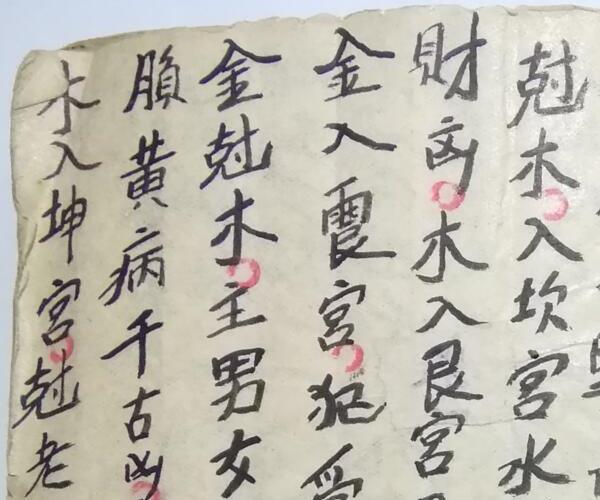 尅木入坎宮水
財凶木入艮宮
金入震宮犯受
金尅木主男女
腦黃病千古凶
木入坤宮尅老